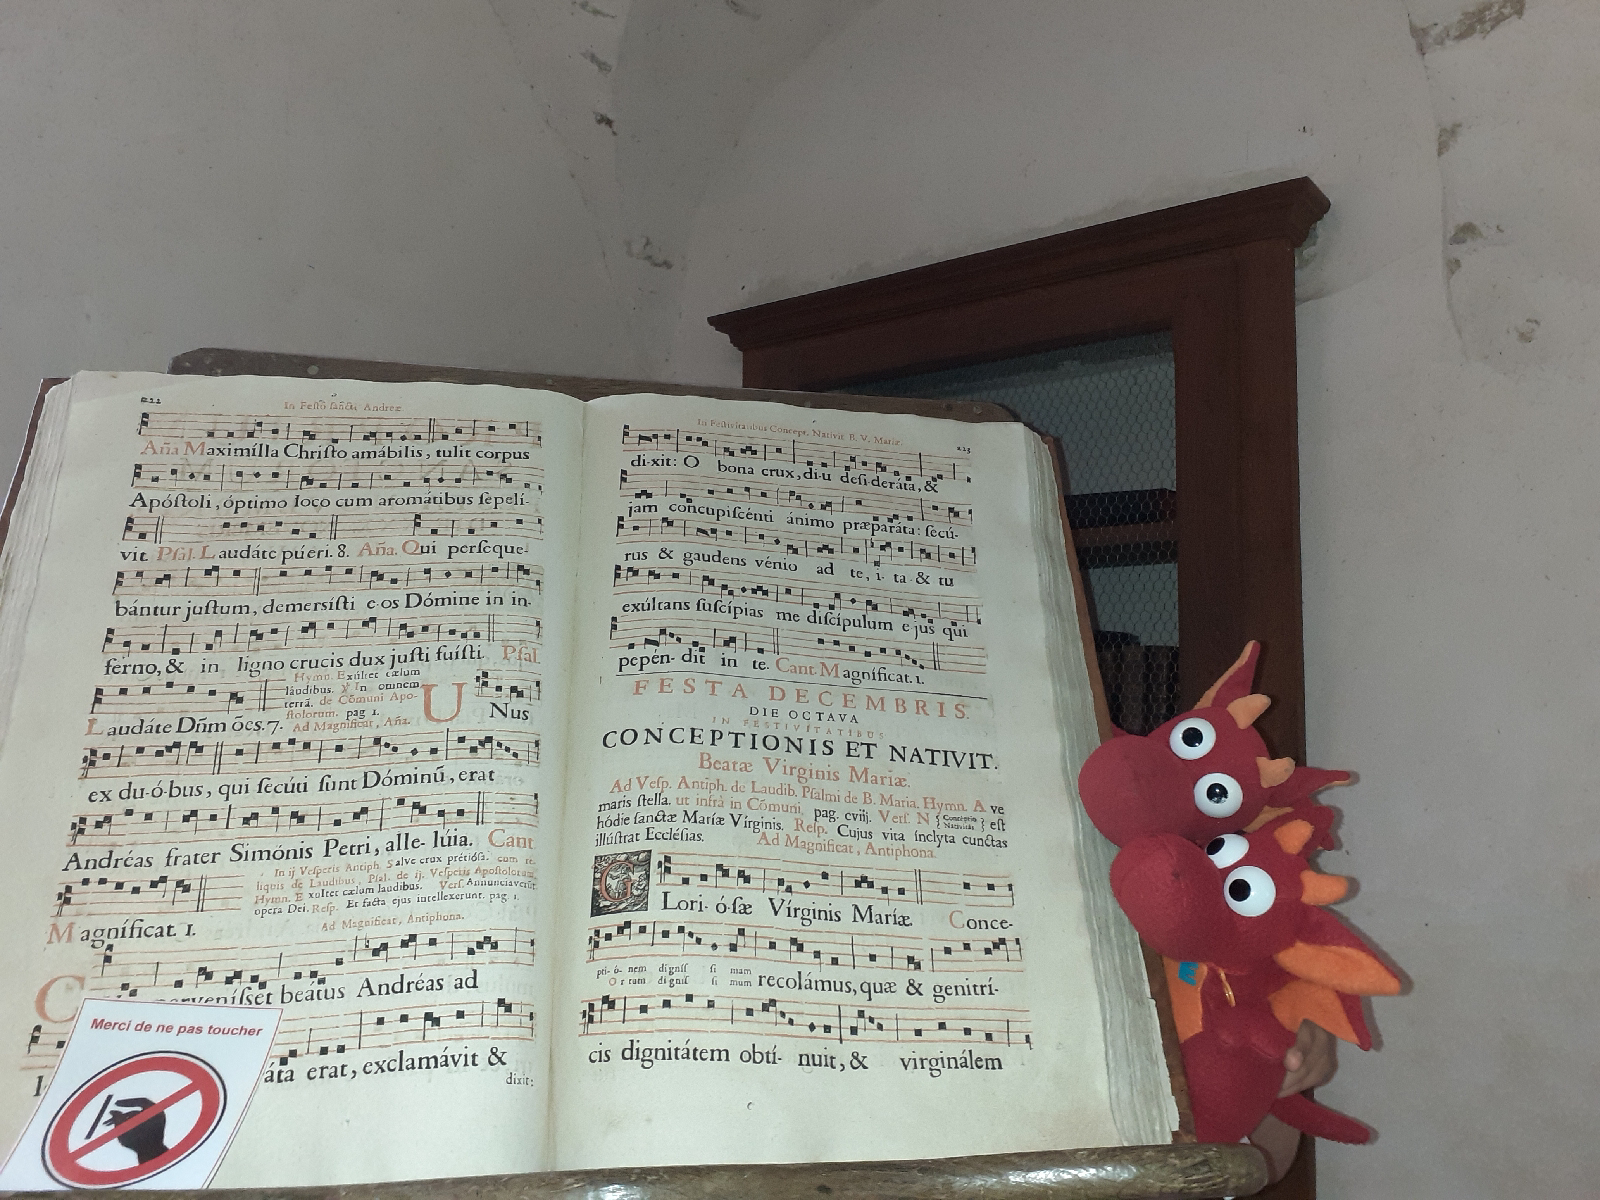 222
In Festo sancti Andreæ
Aña Maximílla Christo amábilis, tulit corpus
Apóstoli, óptimo loco cum aromátibus sepelí-
vit. Psal. Laudáte púeri. 8. Aña. Qui perseque-
bántur justum, demersísti e-os Dómine in in-
férno, & in ligno crucis dux justi fuísti Psal.
Hymn. Exúltet cælum
láudibus. ℣ In omnem
terrā. de Cōmuni Apo-
stolorum. pag 1.
Laudáte Dñm ōes. 7. Ad Magnificat, Aña.
UNus
ex du-ó-bus, qui secúti sunt Dóminū, erat
Andréas frater Simónis Petri, alle- lúia. Cant.
In ij Vesperis Antiph. Salve crux prétiósa. cum re-
liquis de Laudibus, Psal. de ij. Vesperis Apostolorum.
Hymn. Exultet cælum laudibus. Vers. Annunciavérūt
opera Dei. Resp. Et facta ejus intellexerunt. pag. 1.
Magníficat. 1. Ad Magnificat, Antiphona.
C pervenísset beátus Andréas ad
áta erat, exclamávit &
dixit:
Merci de ne pas toucher
In Festivitatibus Concept. Nativit B. V. Mariæ.
223
di-xit: O bona crux, di-u desi-deráta, &
jam concupiscénti ánimo præparáta: secú-
rus & gaudens vénio ad te, i- ta & tu
exúltans suscípias me discípulum ejus qui
pepén- dit in te. Cant. Magníficat. 1.
FESTA DECEMBRIS.
DIE OCTAVA
IN FESTIVITATIBUS
CONCEPTIONIS ET NATIVIT.
Beatæ Virginis Mariæ.
Ad Vesp. Antiph. de Laudib. Psalmi de B. Maria. Hymn. Ave
maris stella. ut infrà in Cōmuni, pag. cviij. Vers. N { Conceptio Nativitas } est
hódie sanctæ Maríæ Vírginis. Resp. Cujus vita ínclyta cunctas
illústrat Ecclésias. Ad Magnificat, Antiphona.
GLori- ó-sæ Vírginis Maríæ Conce-
pti- ó- nem dígnis si mam
O r tum dígnis si mum recolámus, quæ & genitrí-
cis dignitátem obtí- nuit, & virginálem